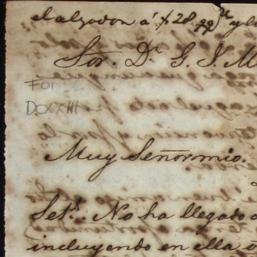 el algodon á $28.99
Sor. Dr. S. J. M
FOI
DOCXIII
Muy Señor mio.
Set. No ha llegado
incluyendo en ella